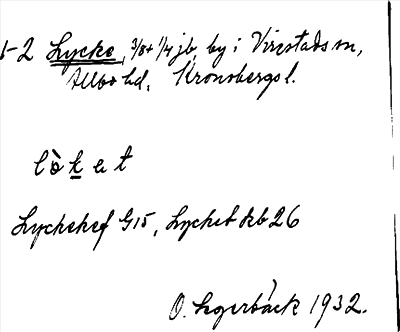 1-2 Lycke, 3/8 + 1/4 j b, by i Virestads sn,
Allbo hd, Kronobergs l.
lòket
Lyckehef G15, Lyckebkb 26
O. Lagerbäck 1932.